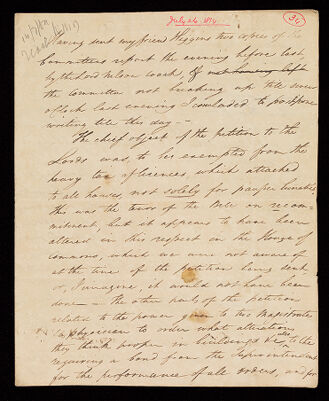 July 26 1814
Having sent my friend Higgins two copies of the
Committees report the evening before last
by the Lord Nelson coach, & not having left
the committee not breaking up till seven
o'clock last evening I concluded to postpone
writing till this day —
The chief object of the petition to the
Lords was, to be exempted from the
heavy tax of licences, which attached
to all houses, not solely for pauper lunatics,
this was the tenor of the Bill on recom-
mitment, but it appears to have been
altered in this respect in the House of
commons, which we were not aware of
at the time of the petition being sent
or, I imagine, it would not have been
done — the other parts of the petition
related to the power given to two Magistrates
& a physician to order what alterations
they think proper in buildings &c also to the
requiring a bond from the Superintendent
for the performance of all orders, and for